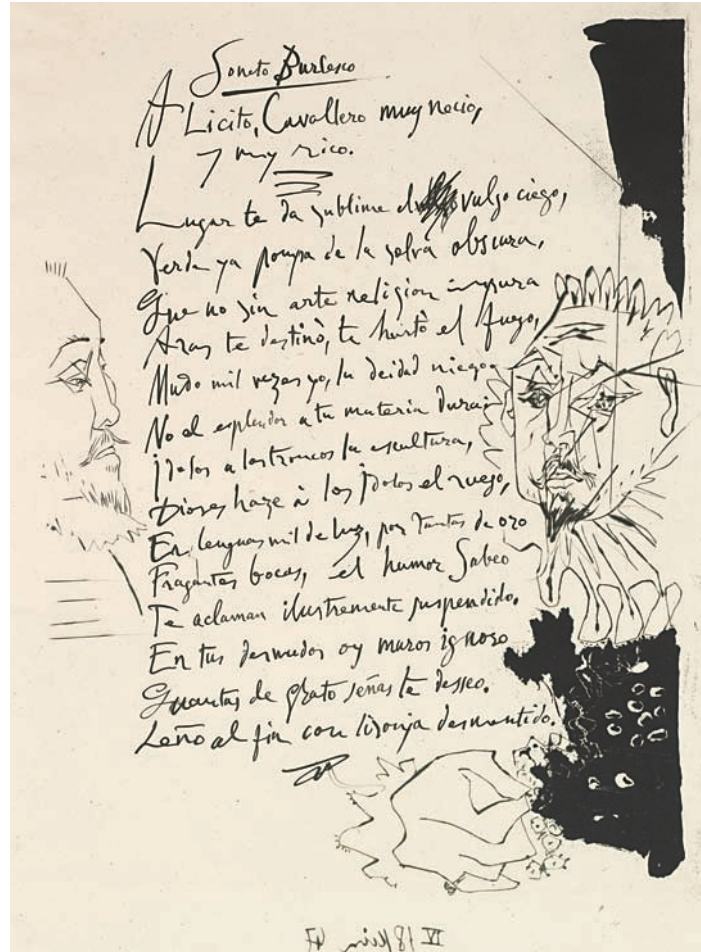 Soneto Burlesco
A Licito, Cavallero muy necio,
y muy rico.
Lugar te da sublime el vulgo ciego,
Verde ya pompa de la selva obscura,
Que no sin arte religion impura
Aras te destinò, te hurtò el fuego,
Mudo mil vezes yo, la deidad niego
No el esplendor a tu materia dura;
jdolos a los troncos la escultura,
Dioses haze à los jdolos el ruego,
En lenguas mil de luz, por tantas de oro
Fragantes bocas, el humor Sabeo
Te aclaman ilustremente suspendido.
En tus desnudos oy muros ignoro
Quantas de grato señas te desseo.
Leño al fin con lisonja desmentido.
IV 18 Juin 47